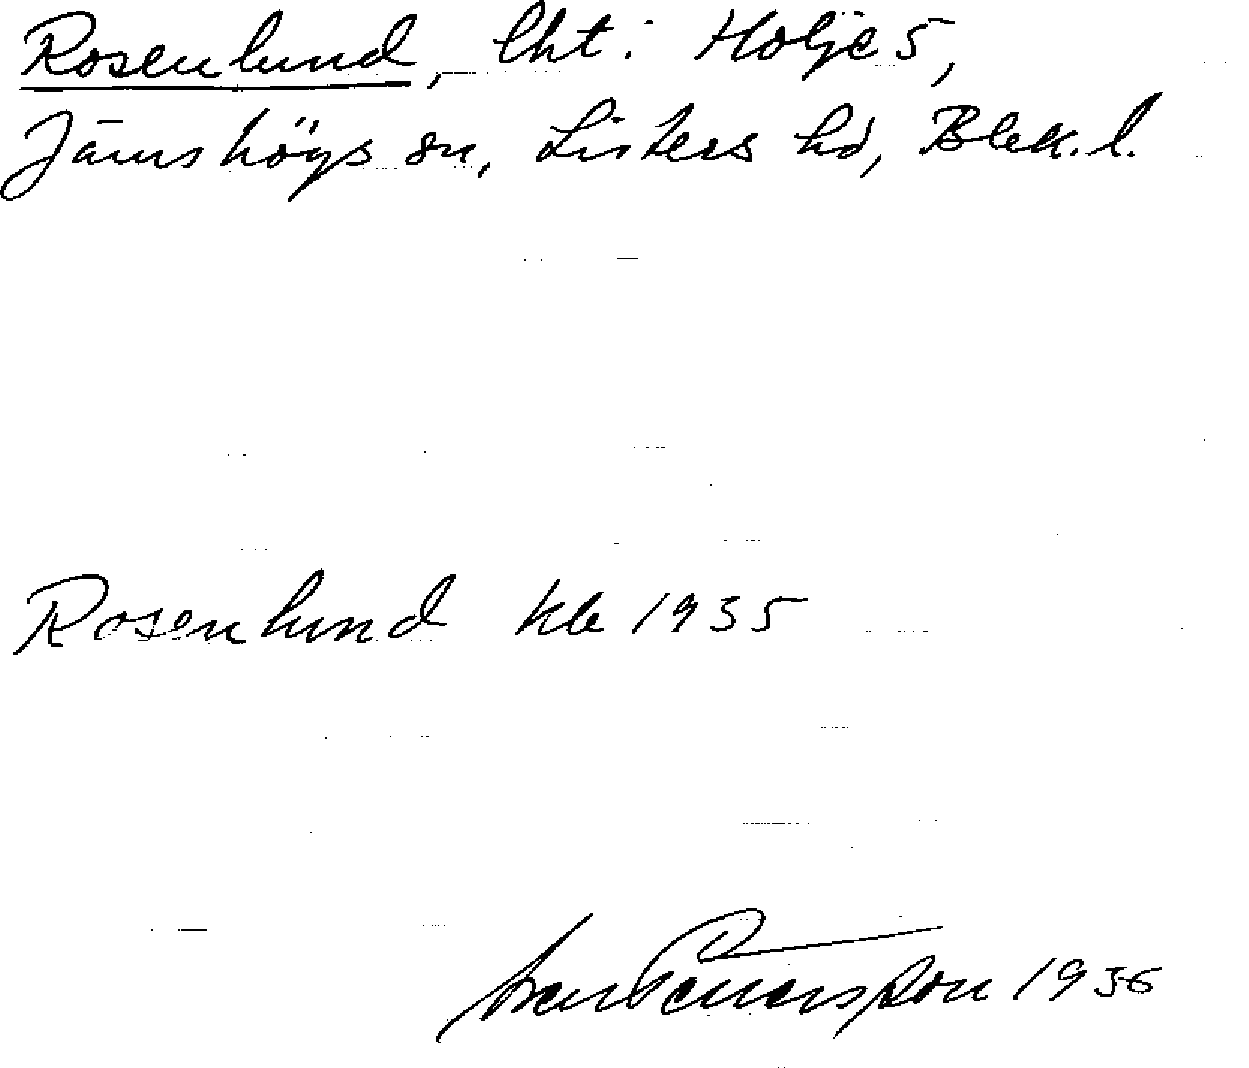 Rosenlund, lht i Holje 5,
Jämshögs sn, Listers hd, Blek. l.
Rosenlund kle 1935
Sven Pettersson 1936